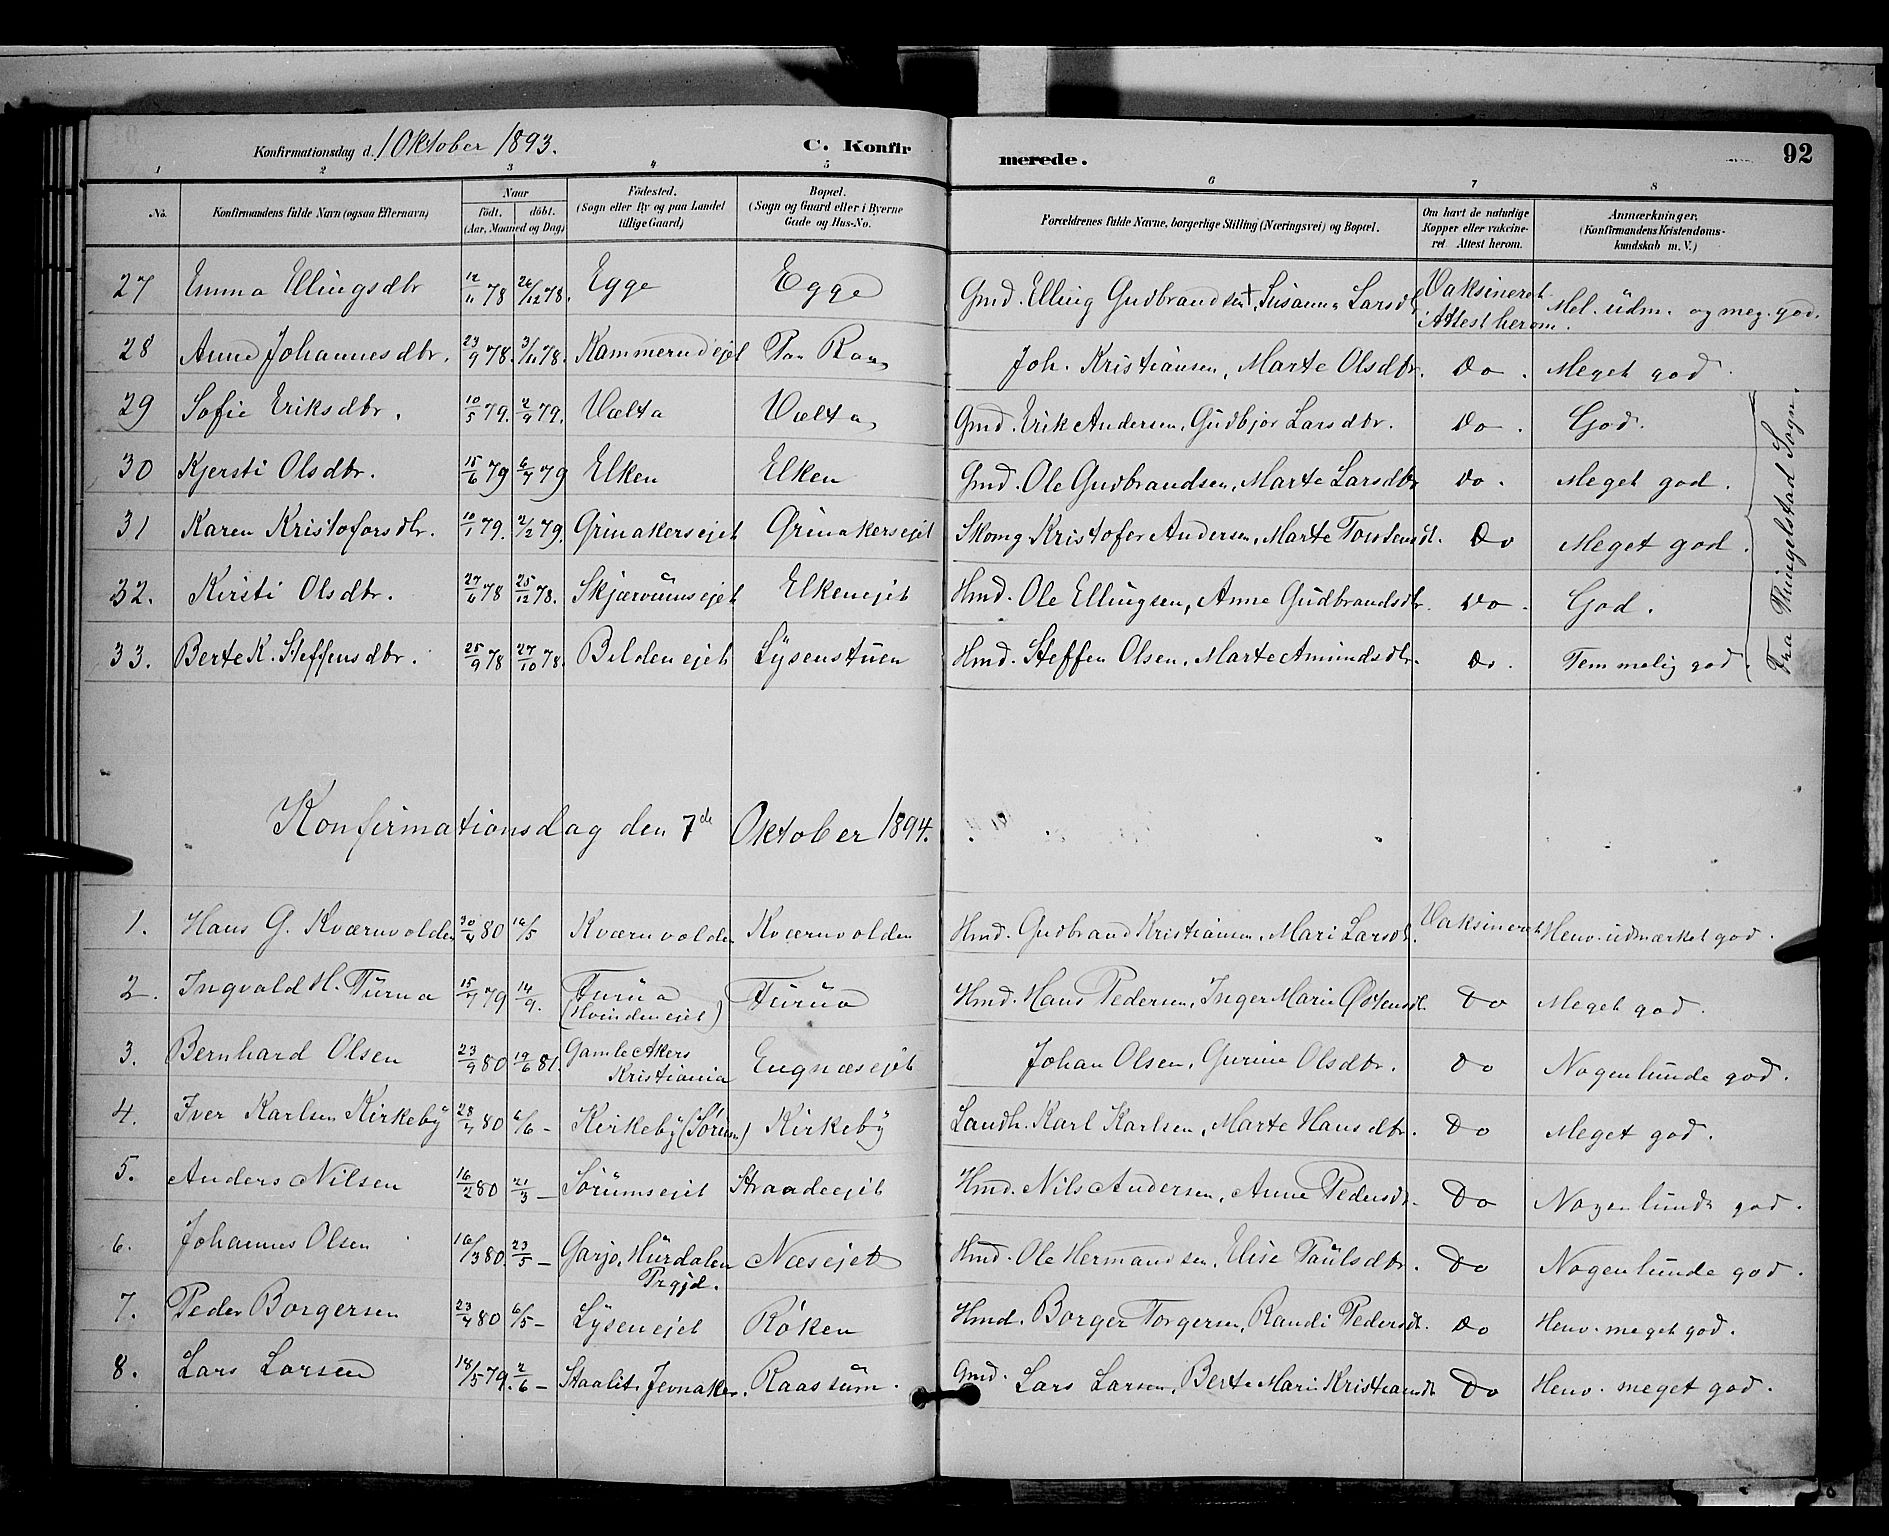 Konfirmationsdag d. 1 Oktober 1893. C. Konfirmerede. 92
1 2 3 4 5 6 7 8
No. Konfirmandens fulde Navn (ogsaa Efternavn) Naar födt. döbt. (Aar, Maaned og Dag) Födested. (Sogn eller By og paa Landet tillige Gaard) Bopæl. (Sogn og Gaard eller i Byerne Gade og Hus-No. Forældrenes fulde Navne, borgerlige Stilling (Næringsvei) og Bopæl. Om havt de naturlige Kopper eller vakcineret Attest herom. Anmærkninger. (Konfirmandens Kristendomskundskab m. V.)
27 Emma Ellingsdbr 12/11 78 26/12 78. Egge Egge Gmd. Elling Gudbrandsen +, Susanna Larsd Vaksineret Attest herom. Mel. udm. og meg. god.
28 Anne Johannesdbr. 23/9 78. 3/11 78. Kammerudejet Paa Raa Joh. Kristiansen, Marte Olsdbr. Do. Meget god.
29 Sofie Eriksdbr. 10/5 79. 2/9 79. Vælta Vælta Gmd. Erik Andersen, Gudbjør Larsdbr. Do. God.
30 Kjersti Olsdbr. 15/6 79 6/7 79 Elken Elken Gmd. Ole Gudbrandsen, Marte Larsdbr Do. Meget god.
31 Karen Kristofersdbr. 10/1 79. 2/2 79. Grinakersejet Grinakersejet Skomg Kristofer Andersen, Marte Torstensd. Do Meget god.
32. Kirsti Olsdbr. 27/6 78 25/12 78. Skjærvumsejet Elkenejet Hmd. Ole Ellingsen, Anne Gudbrandsdbr. Do. God.
33. Berte K. Steffensdbr. 25/9 78 27/10 78. Bildenejet Lysenstuen Hmd. Steffen Olsen, Marte Amundsdbr. Do. Temmelig god.
Fra Thingelstad Sogn.
Konfirmationsdag den 7de Oktober 1894.
1. Hans G. Kværnvolden 30/4 80 16/5 Kværnvolden Kværnvolden Hmd. Gudbrand Kristiansen, Mari Larsdt. Vaksineret Henv. udmærket god.
2. Ingvald H. Furua 15/7 79 14/9. Furua (Hvindenejet) Furua Hmd. Hans Pedersen, Inger Marie Østensdt. Do Meget god.
3. Bernhard Olsen 23/9 80 19/6 81. Gamle Akers Kristiania Engnæsejet Johan Olsen, Gurine Olsdbr. Do Nogenlunde god.
4. Iver Karlsen Kirkeby 28/4 80 6/6 - Kirkeby (Sørum) Kirkeby Landh. Karl Karlsen, Marte Hansdbr. Do Meget god.
5. Anders Nilsen 16/2 80 21/3 - Sørumsejet Strandeejet Hmd. Nils Andersen, Anne Pedersdt. Do Nogenlunde god.
6. Johannes Olsen 16/3 80. 23/5 - Garjo, Hurdalen Prgjd. Næsejet Hmd. Ole Hermandsen, Elise Paulsdbr. Do Nogenlunde god.
7. Peder Borgersen 23/4 80 6/5 - Lysenejet Røken Hmd. Borger Torgersen, Randi Pedersdt. Do Henv. meget god.
8. Lars Larsen 18/5 79. 2/6 - Staalit. Jevnaker. Raassum. Gmd. Lars Larsen, Berte Marie Kristiansdt Do Henv. meget god.